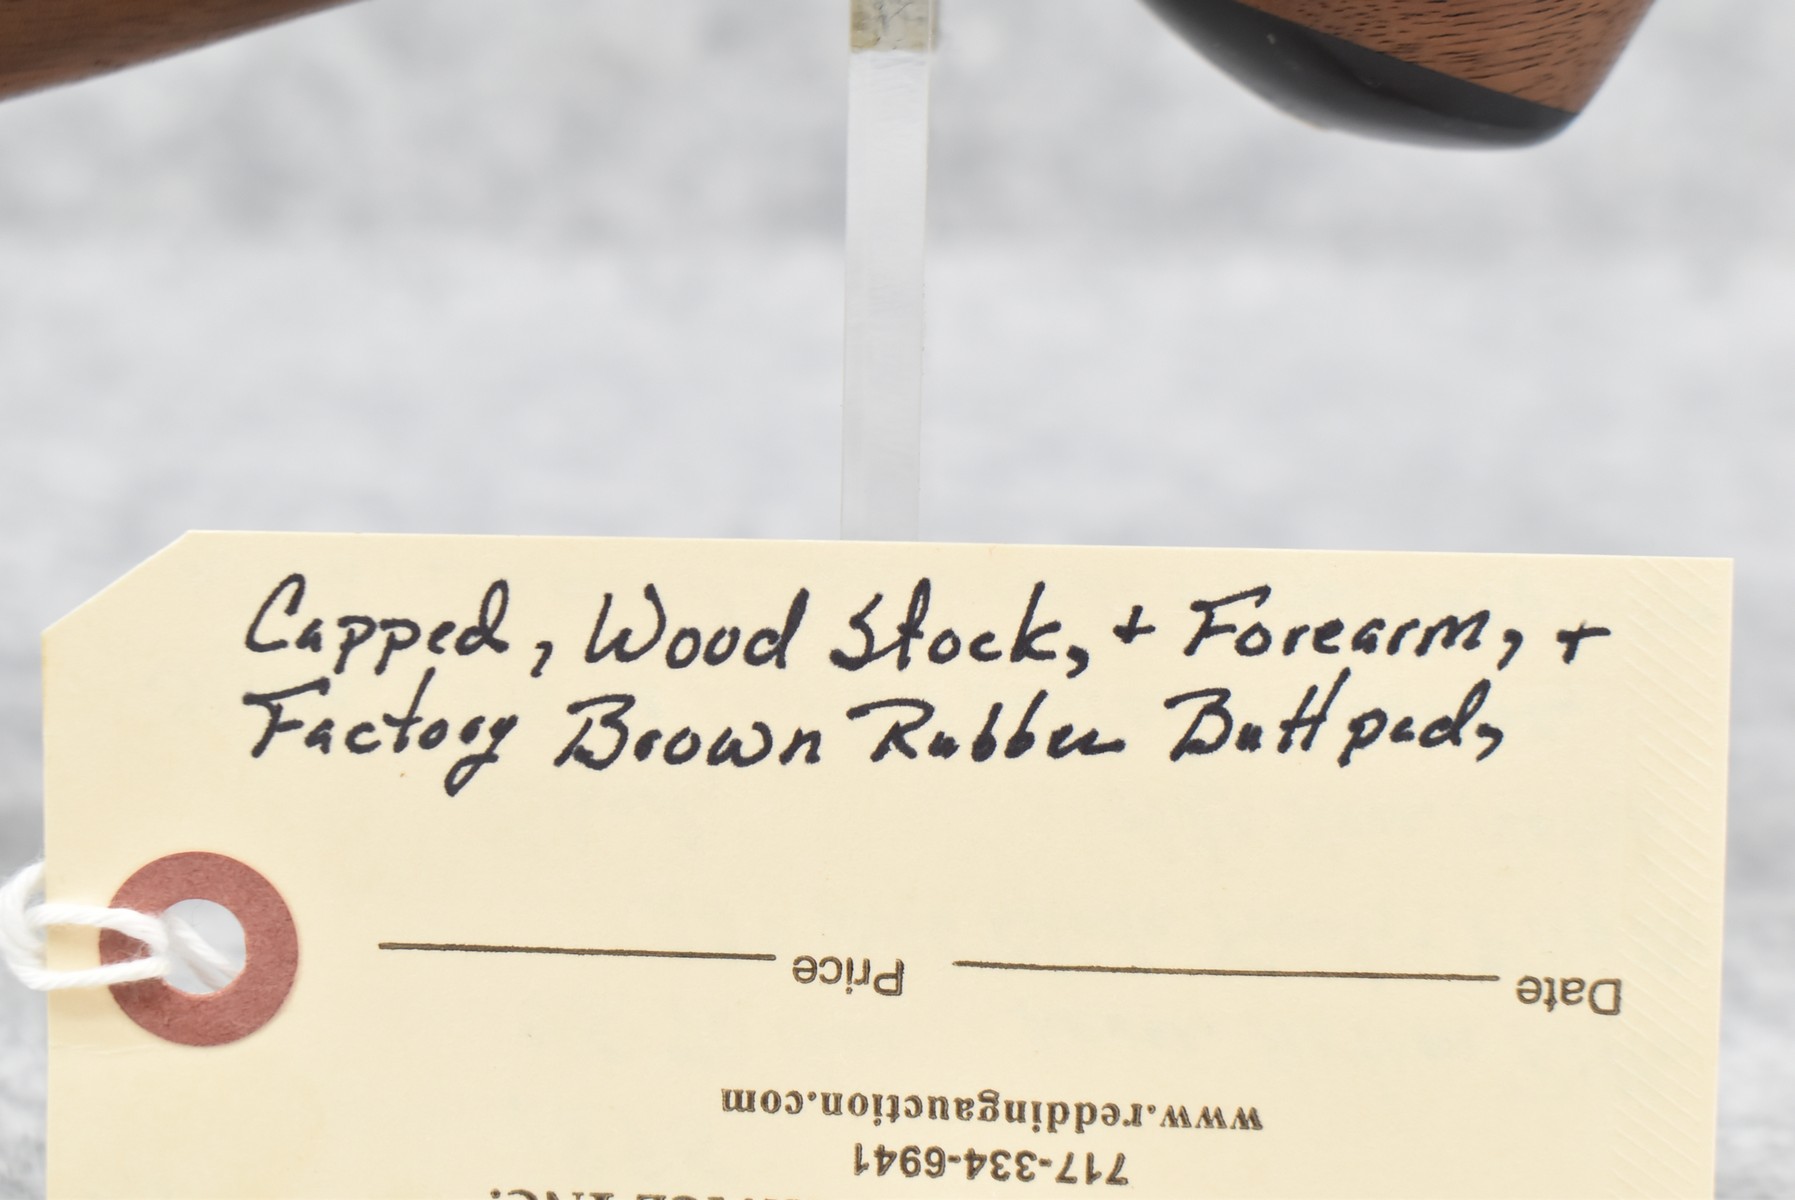 Capped, Wood Stock, + Forearm, +
Factory Brown Rubber Buttpad,
Price
Date
www.reddingauction.com
717-334-6941
INC.